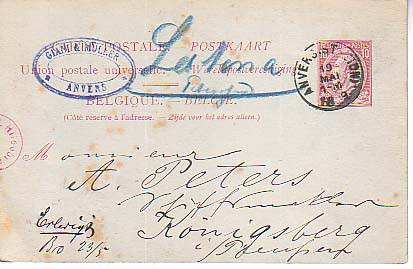 CARTE POSTALE — POSTKAART
Union postale universelle — Wereldpostvereeniging
BELGIQUE. — BELGIË.
(Côté reservé à l'adresse. — Zijde voor het adres alleen.)
MULLER
ANVERS
ANVERS
19
MAI
10
Monsieur
A. Peters
Königsberg
i/Preussen
Erledigt
23/5